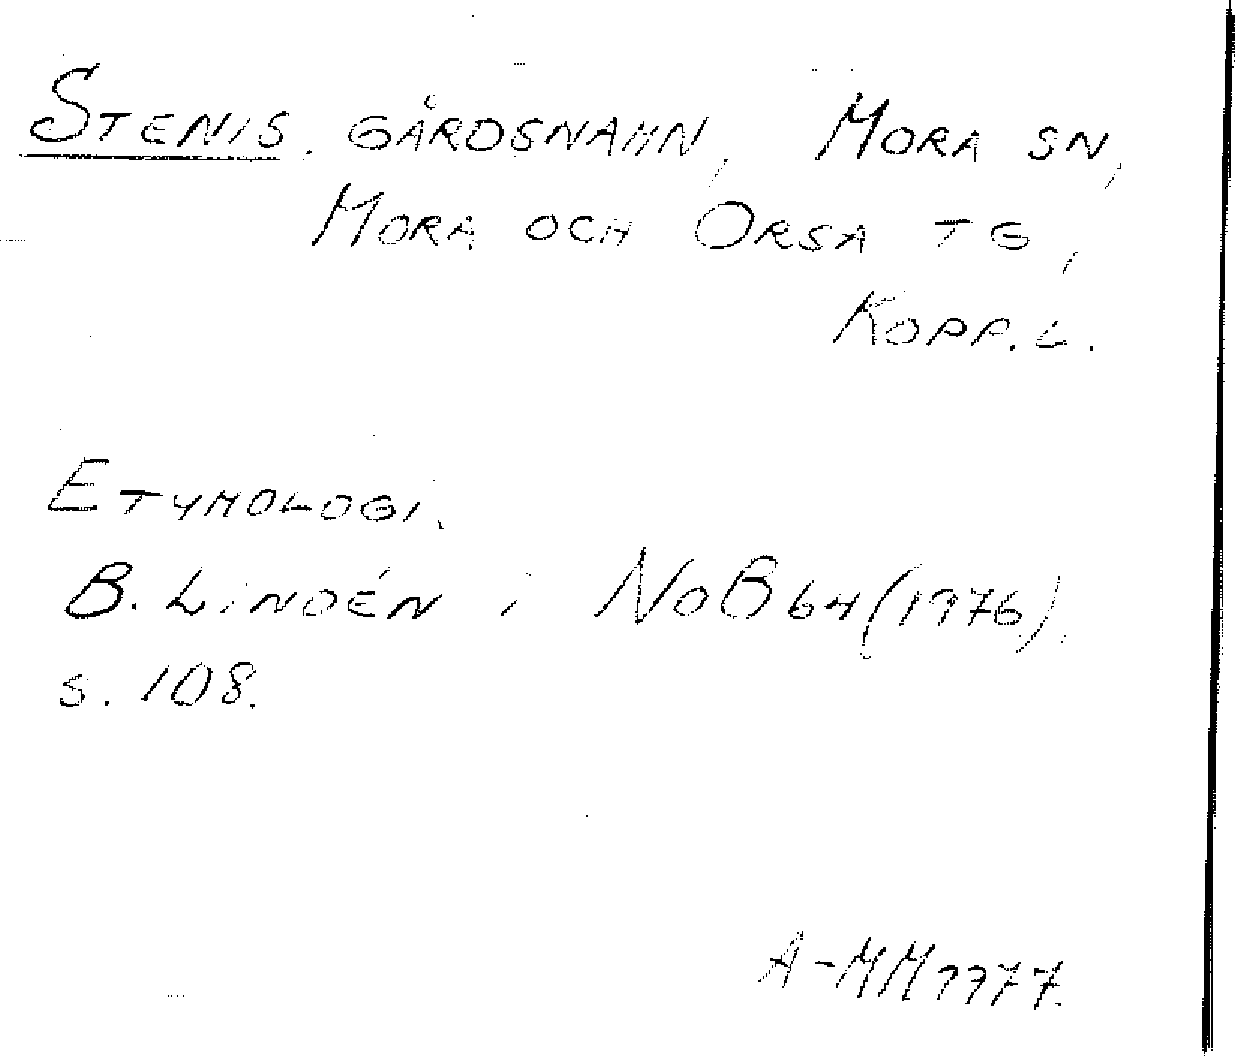 STENIS. GÅRDSNAMN, MORA SN,
MORA OCH ORSA TG,
KOPP. L.
ETYMOLOGI.
B. LINDÉN i NoB 64 (1976).
s. 108.
A-MM 1977.